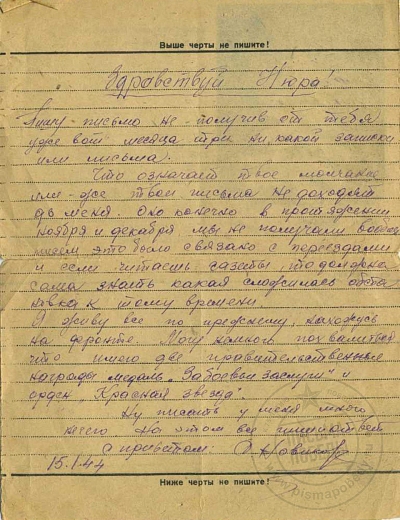 Выше черты не пишите!
Здравствуй Нюра!
Пишу письмо не получив от тебя
уже вот месяца три ни какой записки
или письма.
Что означает твое молчание
или же твои письма не доходят
до меня. Оно конечно в протяжении
ноября и декабря мы не получали
это было связано с переездами
и если читаешь газеты, то должна
сама знать какая сложилась обста
новка к тому времени.
Я живу все по прежнему, нахожусь
на фронте. Могу немного похвалиться
что имею две правительственные
награды медаль "За боевые заслуги" и
орден "Красная звезда".
Ну писать у меня много
нечего на этом все
с приветом: Новиков
15.1.44
Ниже черты не пишите!